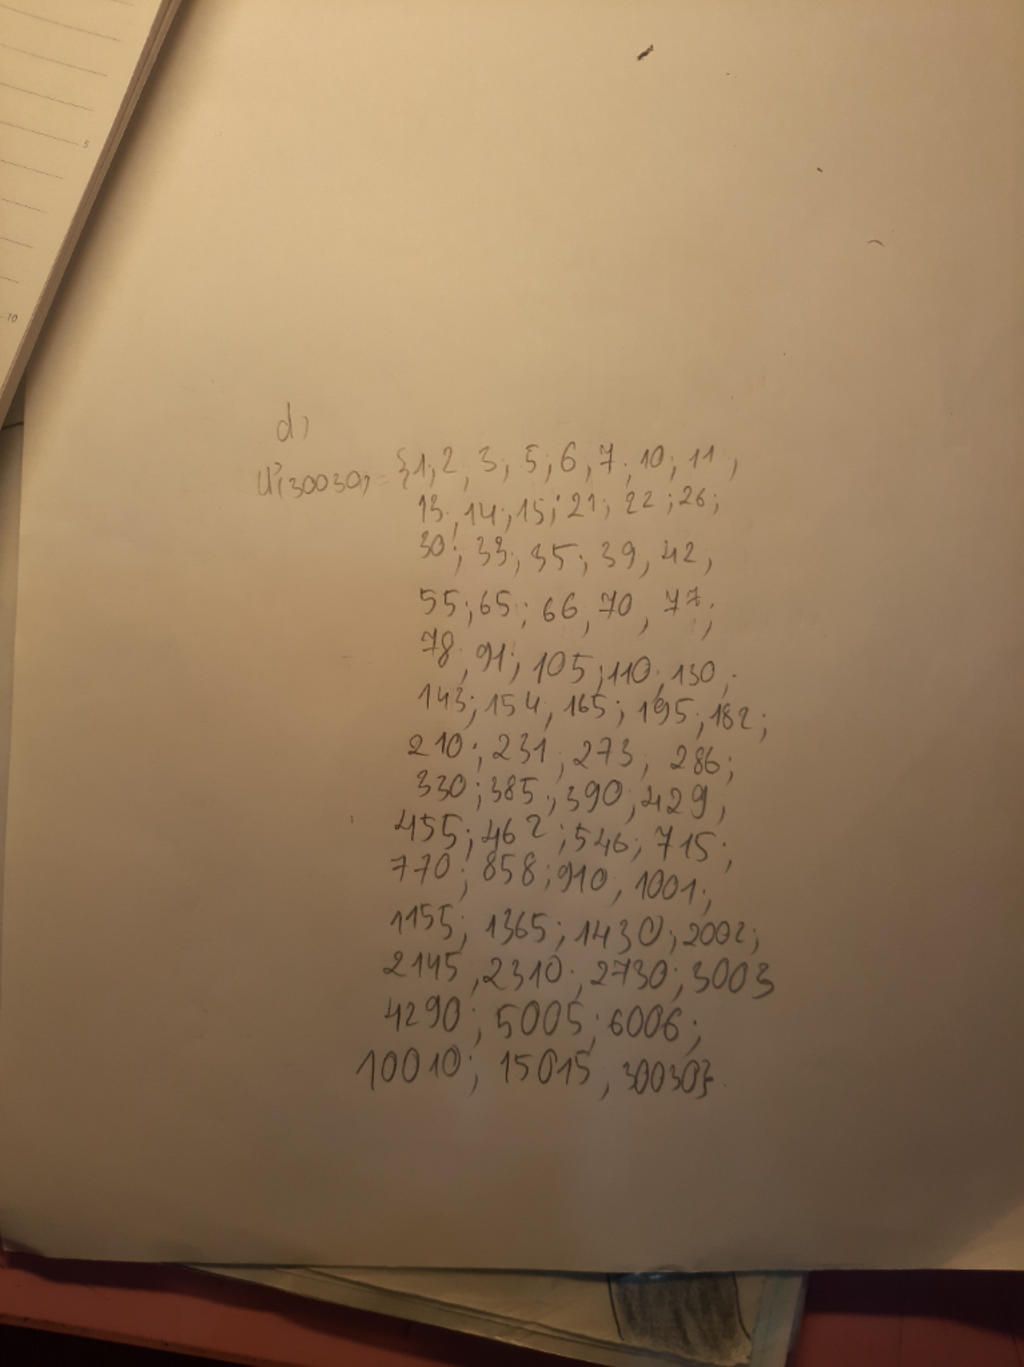 5
10
d)
Ư(30030) = {1; 2, 3; 5; 6, 7; 10; 11,
13, 14; 15; 21; 22; 26;
30; 33; 35; 39, 42,
55; 65; 66, 70, 77;
78, 91; 105; 110, 130;
143; 154, 165; 195; 182;
210; 231, 273, 286;
330; 385, 390, 429,
455; 462; 546; 715;
770; 858; 910, 1001;
1155; 1365; 1430; 2002;
2145, 2310; 2730; 3003
4290; 5005; 6006;
10010; 15015, 30030}